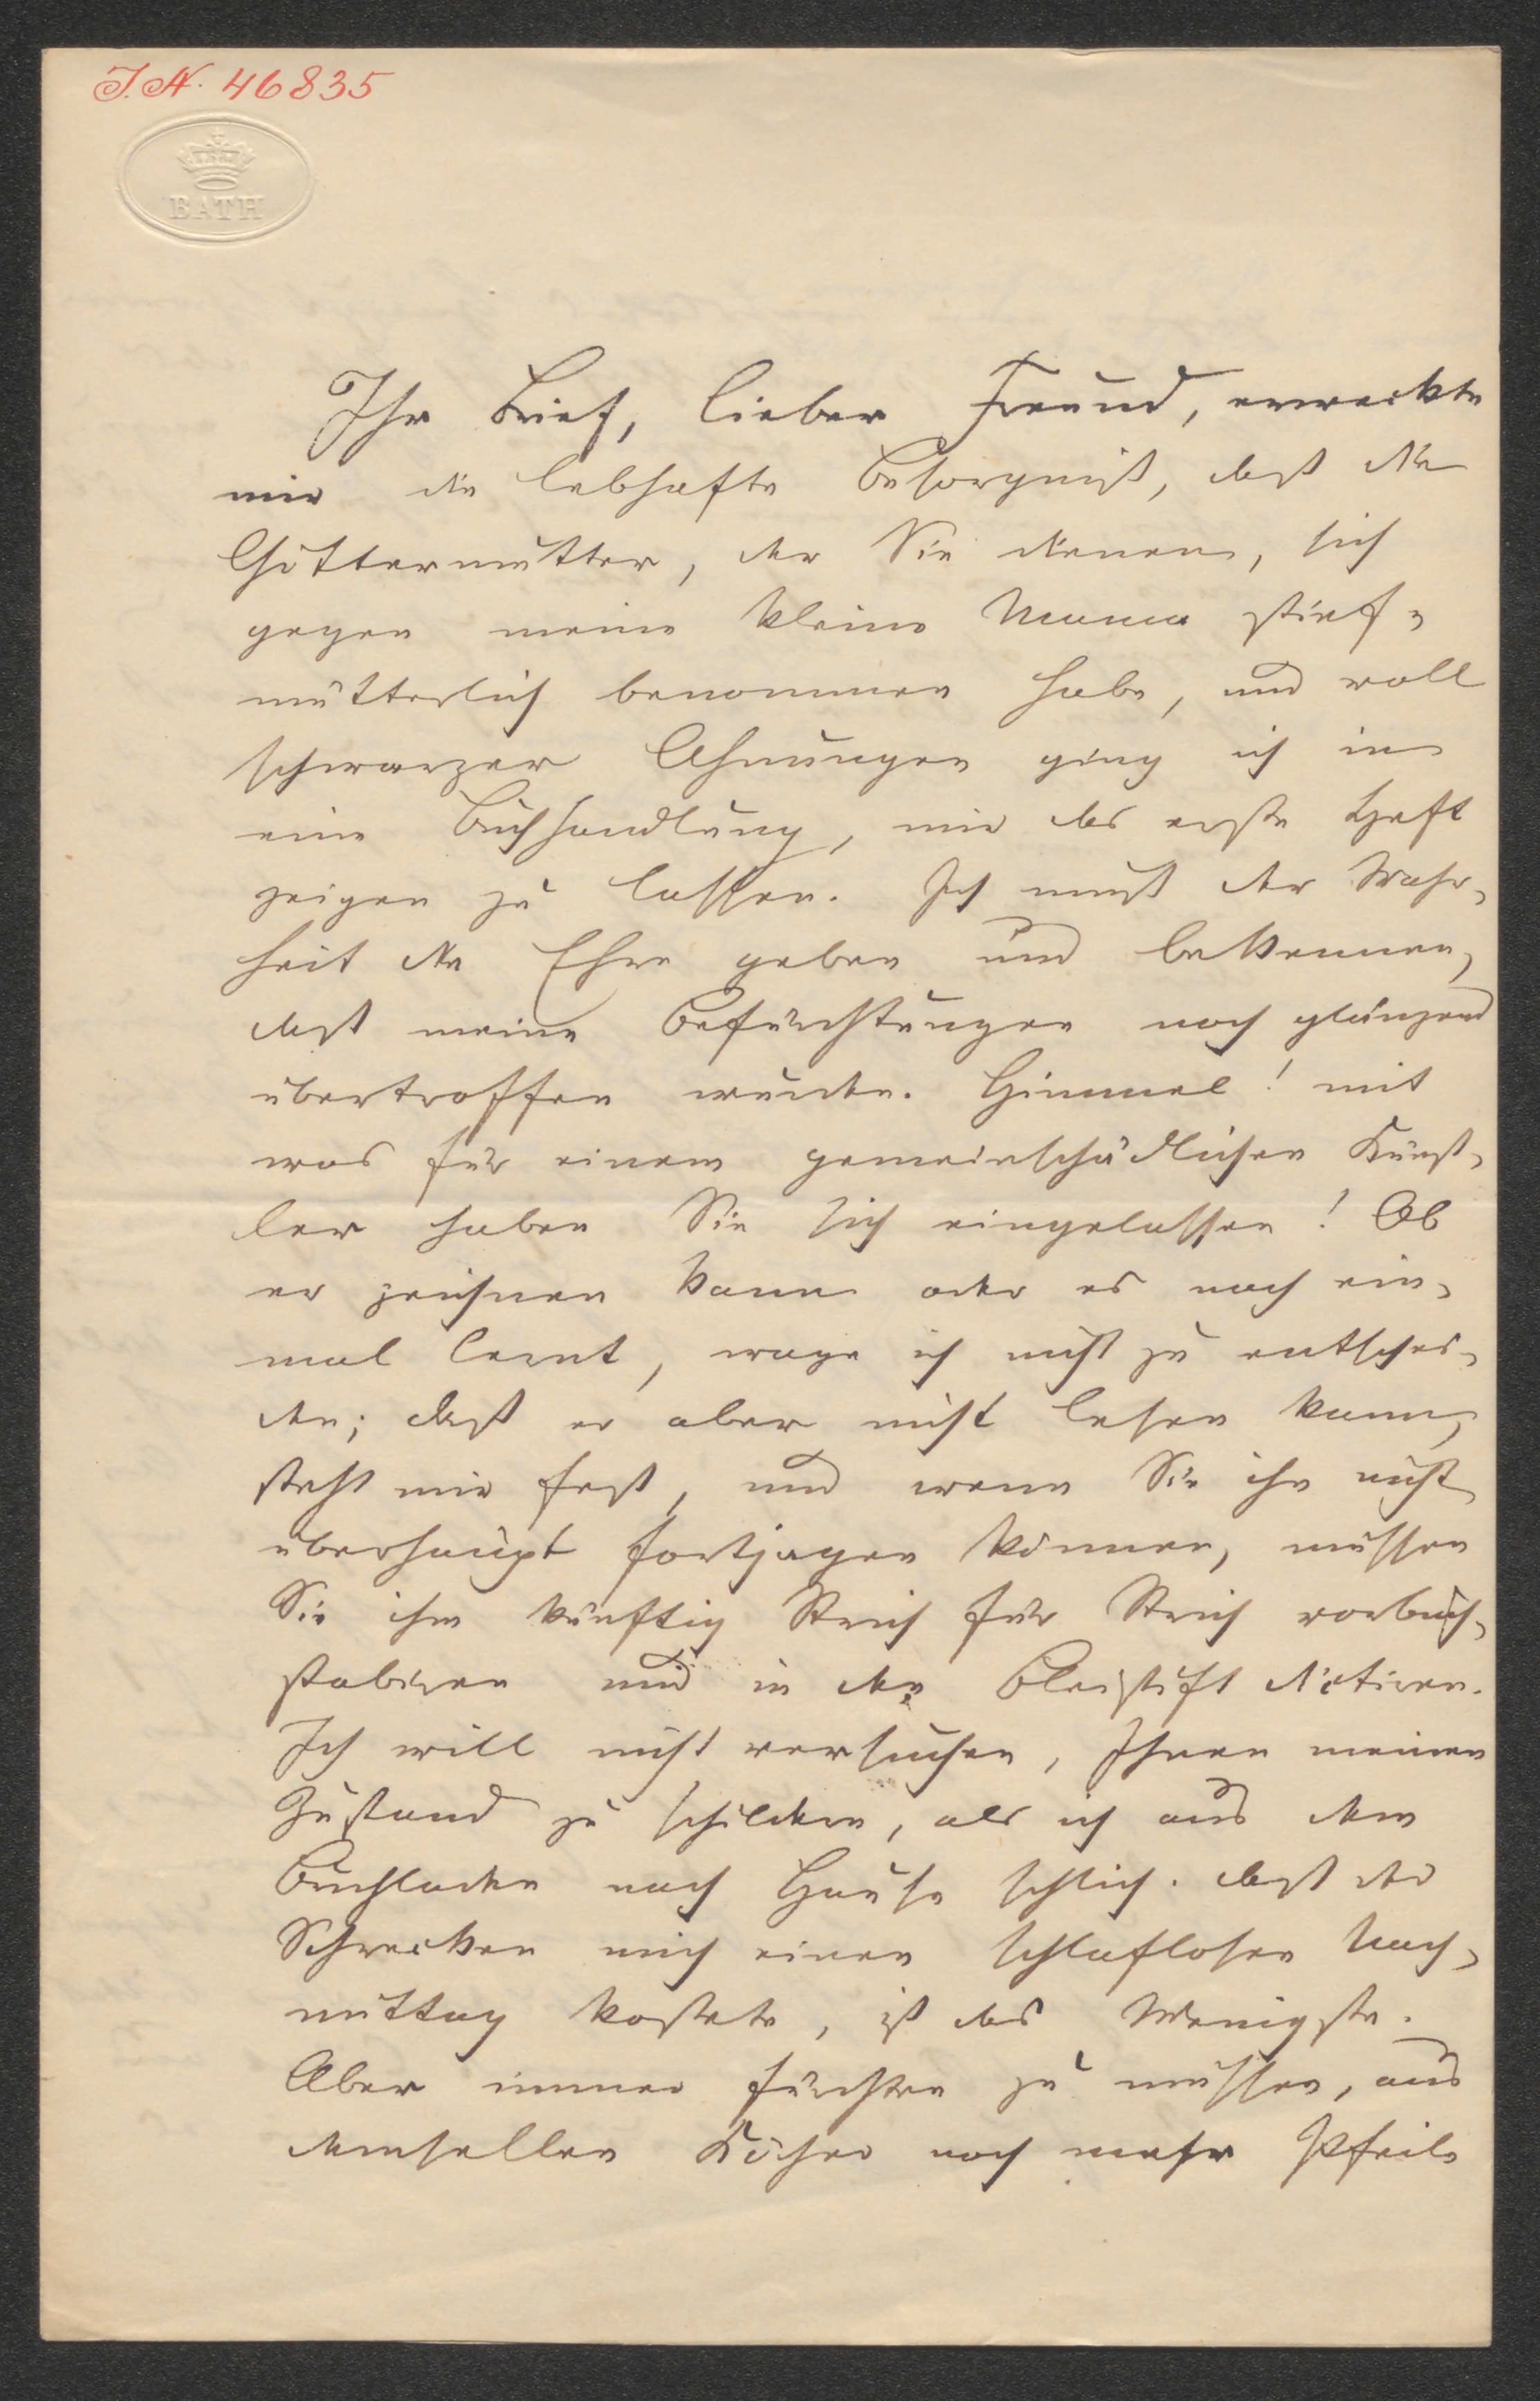 J. N. 46835
BATH
Ihr Brief, lieber Freund, erweckte
mir die lebhafte Besorgniß, daß die
Göttermutter, der Sie dienen, sich
gegen meine kleine Mama stief-
mütterlich benommen habe, und voll
schwarzer Ahnungen ging ich in
eine Buchhandlung, mir das erste Heft
zeigen zu lassen. Ich muß der Wahr-
heit die Ehre geben und bekennen,
daß meine Befürchtungen noch glänzend
übertroffen wurden. Himmel! mit
was für einem gemeinschädlichen Künst-
ler haben Sie sich eingelassen! Ob
er zeichnen kann oder es noch ein-
mal lernt, wage ich nicht zu entschei-
den; daß er aber nicht lesen kann,
steht mir fest, und wenn Sie ihn nicht
überhaupt fortjagen können, müssen
Sie ihm künftig Strich für Strich vorbuch-
stabiren und in den Bleistift dictiren.
Ich will nicht versuchen, Ihnen meinen
Zustand zu schildern, als ich aus dem
Buchladen nach Hause schlich. Daß der
Schrecken mich einen schlaflosen Nach-
mittag kostete, ist das Wenigste.
Aber immer fürchten zu müssen, aus
demselben Köcher noch mehr Pfeile